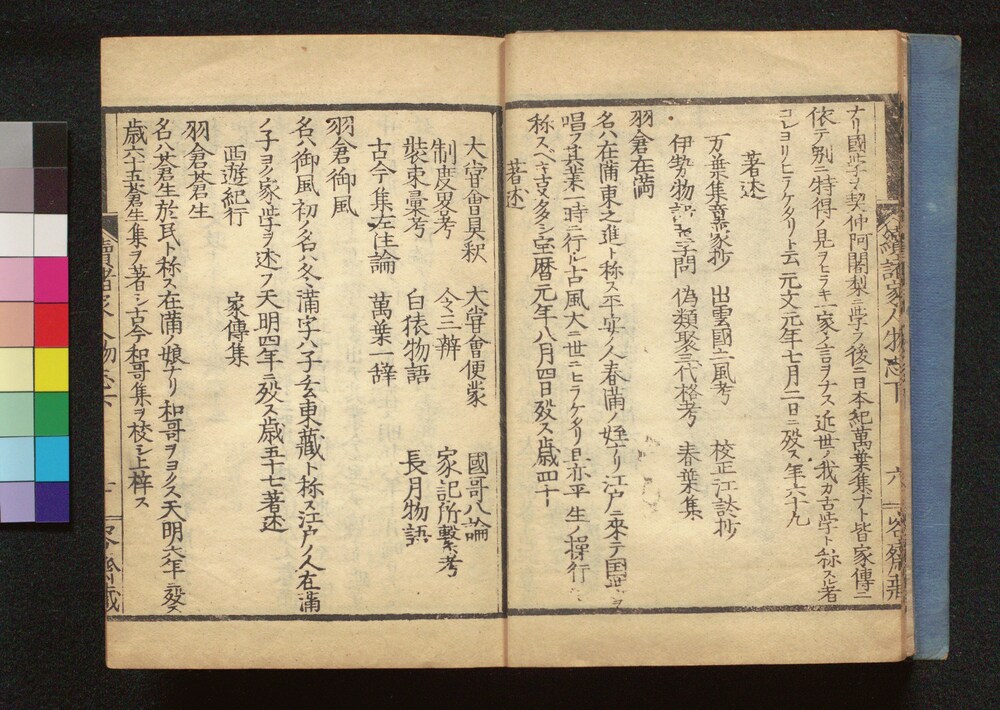 續諸家人物志下
六
ナリ國学ヲ契仲阿闍梨ニ学フ後ニ日本紀萬葉集ナト皆家傳ニ
依テ別ニ特得ノ見ヲヒラキ一家ノ言ヲナス近世ノ我カ古学ト称スル者
コレヨリヒラケタリト云元文元年七月二日ニ殁ス年六十九
著述
万葉集童蒙抄 出雲國土風考 校正江談抄
伊勢物語 字問 偽類聚三代格考 春葉集
羽倉在満
名ハ在滿東之進ト称ス平安ノ人春滿ノ姪ナリ江戸ニ來テ国学ヲ
唱フ其業一時ニ行ル古風大ニ世ニヒラケタリ且亦平生ノ操行
称スベキ夏多シ宝暦元年八月四日殁ス歳四十
著述
大嘗會具釈 大嘗會便蒙 國哥八論
制度畧考 令三辨 家記所繋考
装束彙考 白猿物語 長月物語
古今集左注論 萬葉一辞
羽倉御風
名ハ御風初ノ名ハ冬滿字ハ子玄東藏ト称ス江戸ノ人在滿
ノ子ヨク家学ヲ述フ天明四年ニ殁ス歳五十七著述
西遊紀行 家傳集
羽倉蒼生
名ハ蒼生於民ト称ス在滿ノ娘ナリ和哥ヲヨクス天明六年ニ殁ス
歳六十五蒼生集ヲ著シ古今和哥集ヲ校シ上梓ス